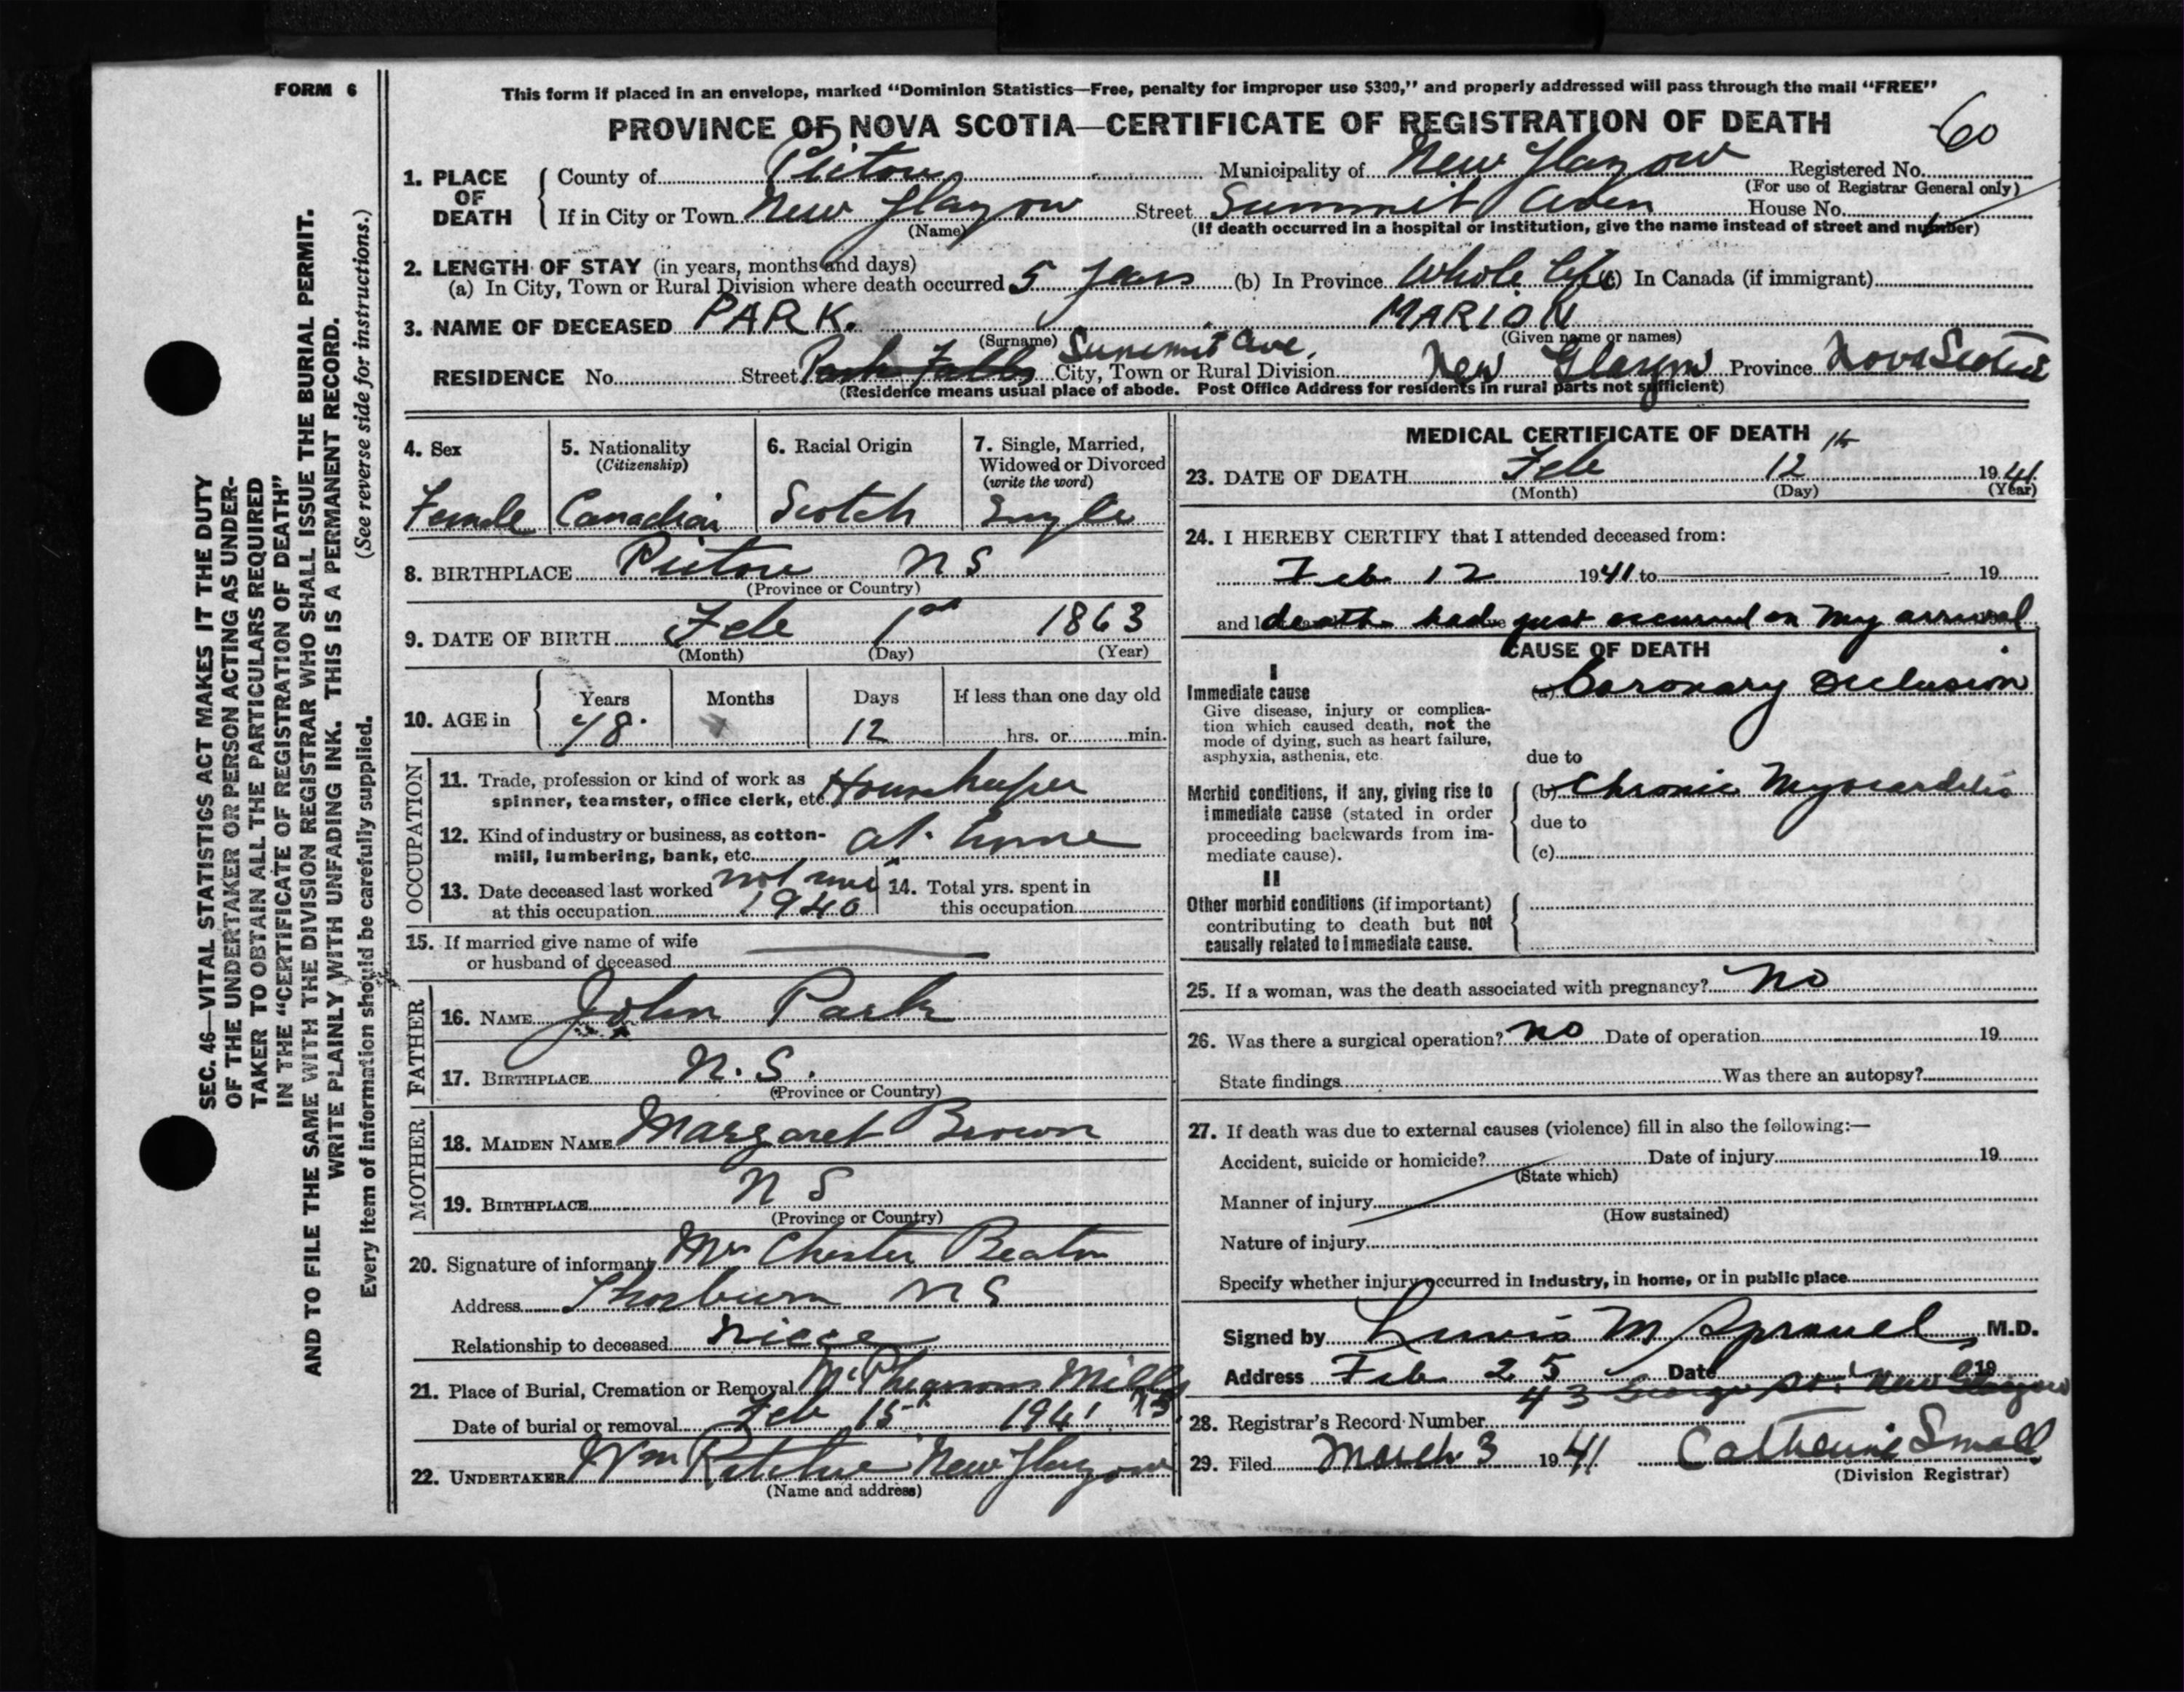 FORM 6
This form if placed in an envelope, marked "Dominion Statistics—Free, penalty for improper use $300," and properly addressed will pass through the mail "FREE"
PROVINCE OF NOVA SCOTIA—CERTIFICATE OF REGISTRATION OF DEATH
60
1. PLACE OF DEATH
County of Pictou Municipality of New Glasgow Registered No.
(For use of Registrar General only)
If in City or Town New Glasgow Street Summit Aven House No.
(Name) (If death occurred in a hospital or institution, give the name instead of street and number)
2. LENGTH OF STAY (in years, months and days)
(a) In City, Town or Rural Division where death occurred 5 years (b) In Province Whole life (c) In Canada (if immigrant)
3. NAME OF DECEASED PARK. MARION
(Surname) (Given name or names)
Summit Ave.
RESIDENCE No. Street City, Town or Rural Division New Glasgow Province Nova Scotia
(Residence means usual place of abode. Post Office Address for residents in rural parts not sufficient)
4. Sex
Female
5. Nationality
(Citizenship)
Canadian
6. Racial Origin
Scotch
7. Single, Married,
Widowed or Divorced
(write the word)
Single
8. BIRTHPLACE Pictou N S
(Province or Country)
9. DATE OF BIRTH Feb 1st 1863
(Month) (Day) (Year)
10. AGE in
Years Months Days If less than one day old
78 12 hrs. or min.
OCCUPATION
11. Trade, profession or kind of work as
spinner, teamster, office clerk, etc. Housekeeper
12. Kind of industry or business, as cotton-
mill, lumbering, bank, etc. at home
13. Date deceased last worked
at this occupation 1940
14. Total yrs. spent in
this occupation
15. If married give name of wife
or husband of deceased
FATHER
16. NAME John Park
17. BIRTHPLACE N.S.
(Province or Country)
MOTHER
18. MAIDEN NAME Margaret Brown
19. BIRTHPLACE N S
(Province or Country)
20. Signature of informant Mrs Chester Beaton
Address Thorburn N S
Relationship to deceased niece
21. Place of Burial, Cremation or Removal McPhersons Mills N S
Date of burial or removal Feb 15th 1941
22. UNDERTAKER Wm Ritchie New Glasgow
(Name and address)
MEDICAL CERTIFICATE OF DEATH
23. DATE OF DEATH Feb 12th 1941
(Month) (Day) (Year)
24. I HEREBY CERTIFY that I attended deceased from:
Feb 12 1941 to 19
and l death had just occurred on my arrival
CAUSE OF DEATH
I
Immediate cause
Give disease, injury or complica-
tion which caused death, not the
mode of dying, such as heart failure,
asphyxia, asthenia, etc.
(a) Coronary Occlusion
due to
Morbid conditions, if any, giving rise to
immediate cause (stated in order
proceeding backwards from im-
mediate cause).
(b) Chronic Myocarditis
due to
(c)
II
Other morbid conditions (if important)
contributing to death but not
causally related to immediate cause.
25. If a woman, was the death associated with pregnancy? No
26. Was there a surgical operation? no Date of operation 19
State findings Was there an autopsy?
27. If death was due to external causes (violence) fill in also the following:—
Accident, suicide or homicide? Date of injury 19
(State which)
Manner of injury
(How sustained)
Nature of injury
Specify whether injury occurred in industry, in home, or in public place
Signed by M M.D.
Address Feb 25 Date 19
43 George St. New Glasgow
28. Registrar's Record Number
29. Filed March 3 1941 Catherine Small
(Division Registrar)
SEC. 46—VITAL STATISTICS ACT MAKES IT THE DUTY
OF THE UNDERTAKER OR PERSON ACTING AS UNDER-
TAKER TO OBTAIN ALL THE PARTICULARS REQUIRED
IN THE "CERTIFICATE OF REGISTRATION OF DEATH"
AND TO FILE THE SAME WITH THE DIVISION REGISTRAR WHO SHALL ISSUE THE BURIAL PERMIT.
WRITE PLAINLY WITH UNFADING INK. THIS IS A PERMANENT RECORD.
Every item of information should be carefully supplied. (See reverse side for instructions.)